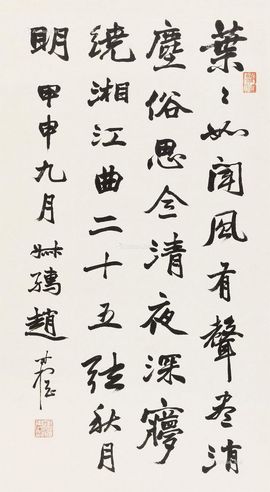 葉〻如聞風有聲盡消
塵俗思全清夜深夢
繞湘江曲二十五弦秋月
明 甲申九月 叔孺趙